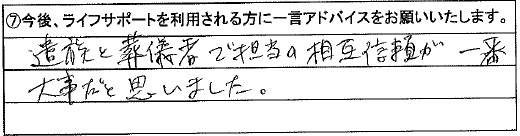 ⑦今後、ライフサポートを利用される方に一言アドバイスをお願いいたします。
遺族と葬儀者で担当の相互信頼が一番
大事だと思いました。